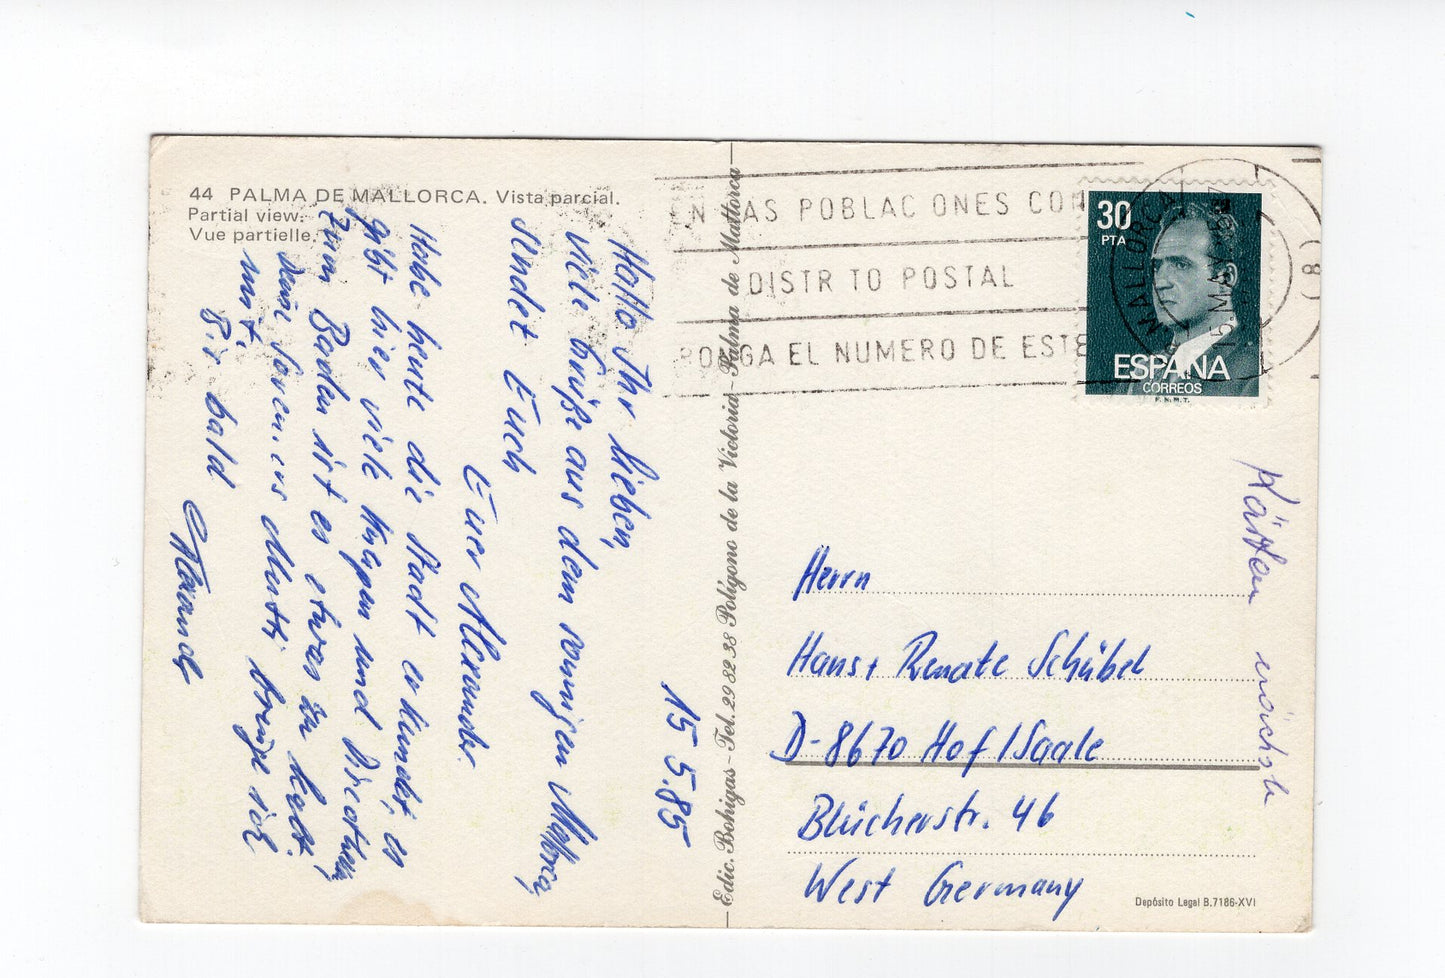 44 PALMA DE MALLORCA. Vista parcial.
Partial view.
Vue partielle.
15.5.85
Hallo Ihr lieben,
viele Grüße aus dem sonnigen Mallorca,
sendet Euch
Euer Alexander.
Habe heute die Stadt erkundet, es
gibt hier viele und
Zum Baden ist es etwas zu kalt.
bringe ich
mit.
Bis bald
Edic. Bohigas - Tel. 29 82 38 Polígono de la Victoria - Palma de Mallorca
EN LAS POBLAC ONES CON
DISTR TO POSTAL
PONGA EL NUMERO DE ESTE
MALLORCA
15 MAY
(8)
30
PTA
ESPAÑA
CORREOS
F.N.M.T.
Herrn
Hans + Renate Schübel
D-8670 Hof/Saale
Blücherstr. 46
West Germany
Depósito Legal B.7186-XVI